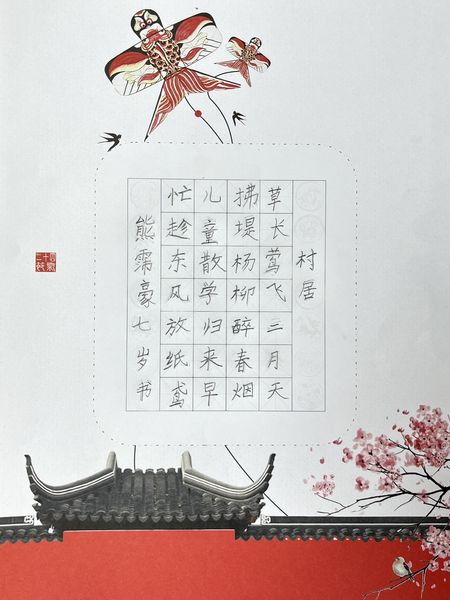 村居
草长莺飞三月天
拂堤杨柳醉春烟
儿童散学归来早
忙趁东风放纸鸢
熊霈豪七岁书